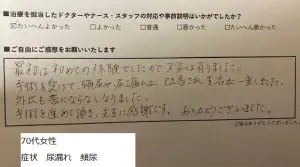 ■治療を担当したドクターやナース・スタッフの対応や事前説明はいかがでしたか？
☑たいへんよかった □よかった □普通 □悪かった □たいへん悪かった
■ご自由にご感想をお願いいたします
最初は初めての体験でしたので不安は有りました。
手術を受けて、頻尿や尿もれが改善され生活が一変しました。
外出も苦にならなくなりました。
手術を進めて頂き、先生に感謝です。ありがとうございました。
ご協力ありがとうございました
70代女性
症状 尿漏れ 頻尿